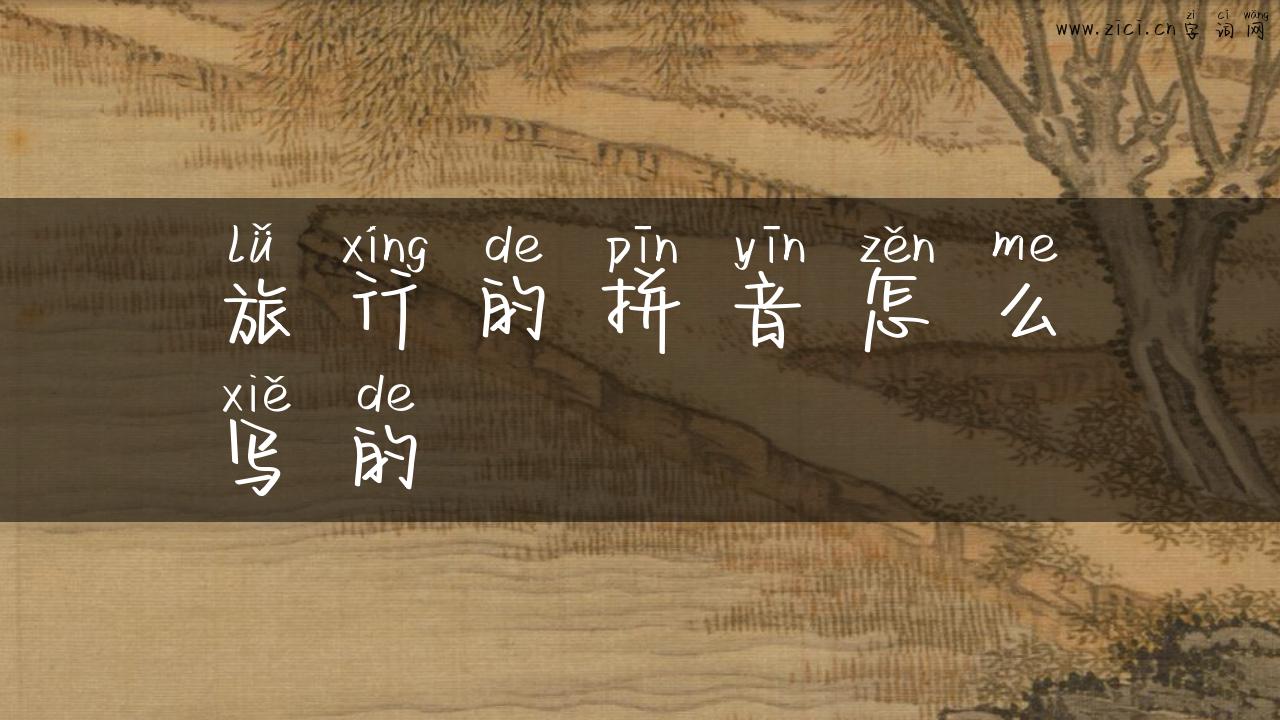 zì cí wǎng
www.zici.cn字词网
lǚ xíng de pīn yīn zěn me
旅行的拼音怎么
xiě de
写的